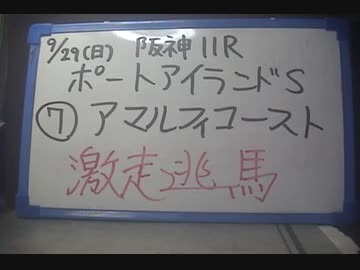 9/29(日) 阪神11R
ポートアイランドS
⑦ アマルフィコースト
激走逃馬